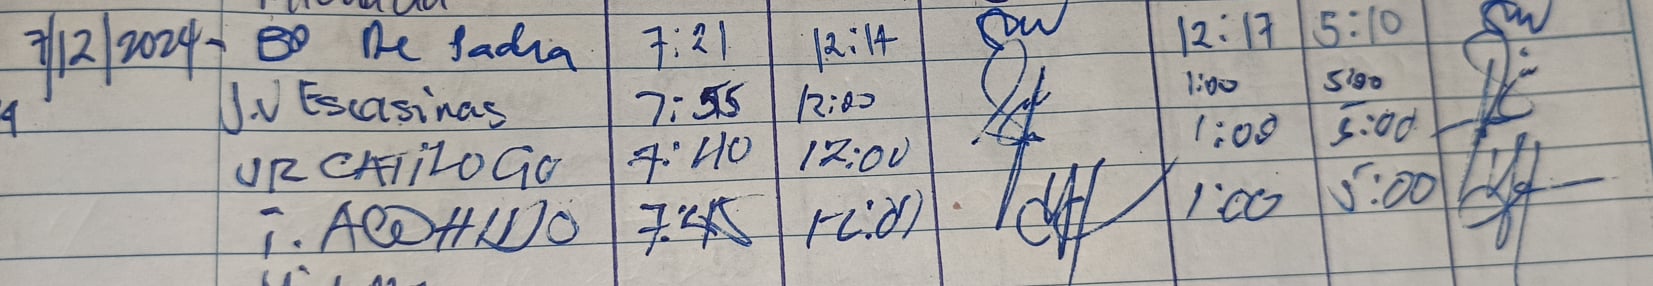 7/12/2024 - BD De Padua 7:21 12:14 12:17 5:10
J.V Escasinas 7:55 12:00 1:00 5:00
JR CATILOGO 7:40 12:00 1:00 5:00
7:45 12:01 1:00 5:00